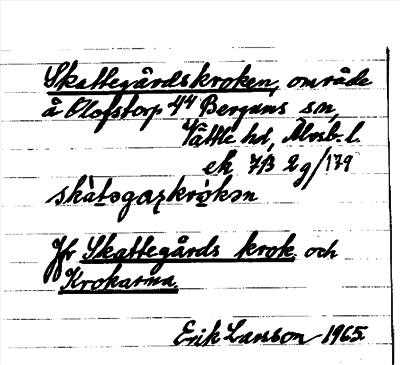 Skattegårdskroken, område
å Olofstorp 4⁴ Bergums sn,
Vättle hd, Älvsb. l.
ek 7B 2g/179
skàtəgaʐkrò̩kən
Jfr Skattegårds krok och
Krokarna.
Erik Larsson 1965.